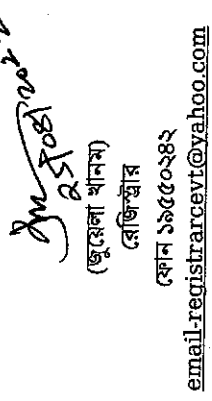 ২৫/০৪/২০২২
(জুয়েলা খানম)
রেজিস্ট্রার
ফোন ১৯৫৫০২৪২
email-registrarcevt@yahoo.com